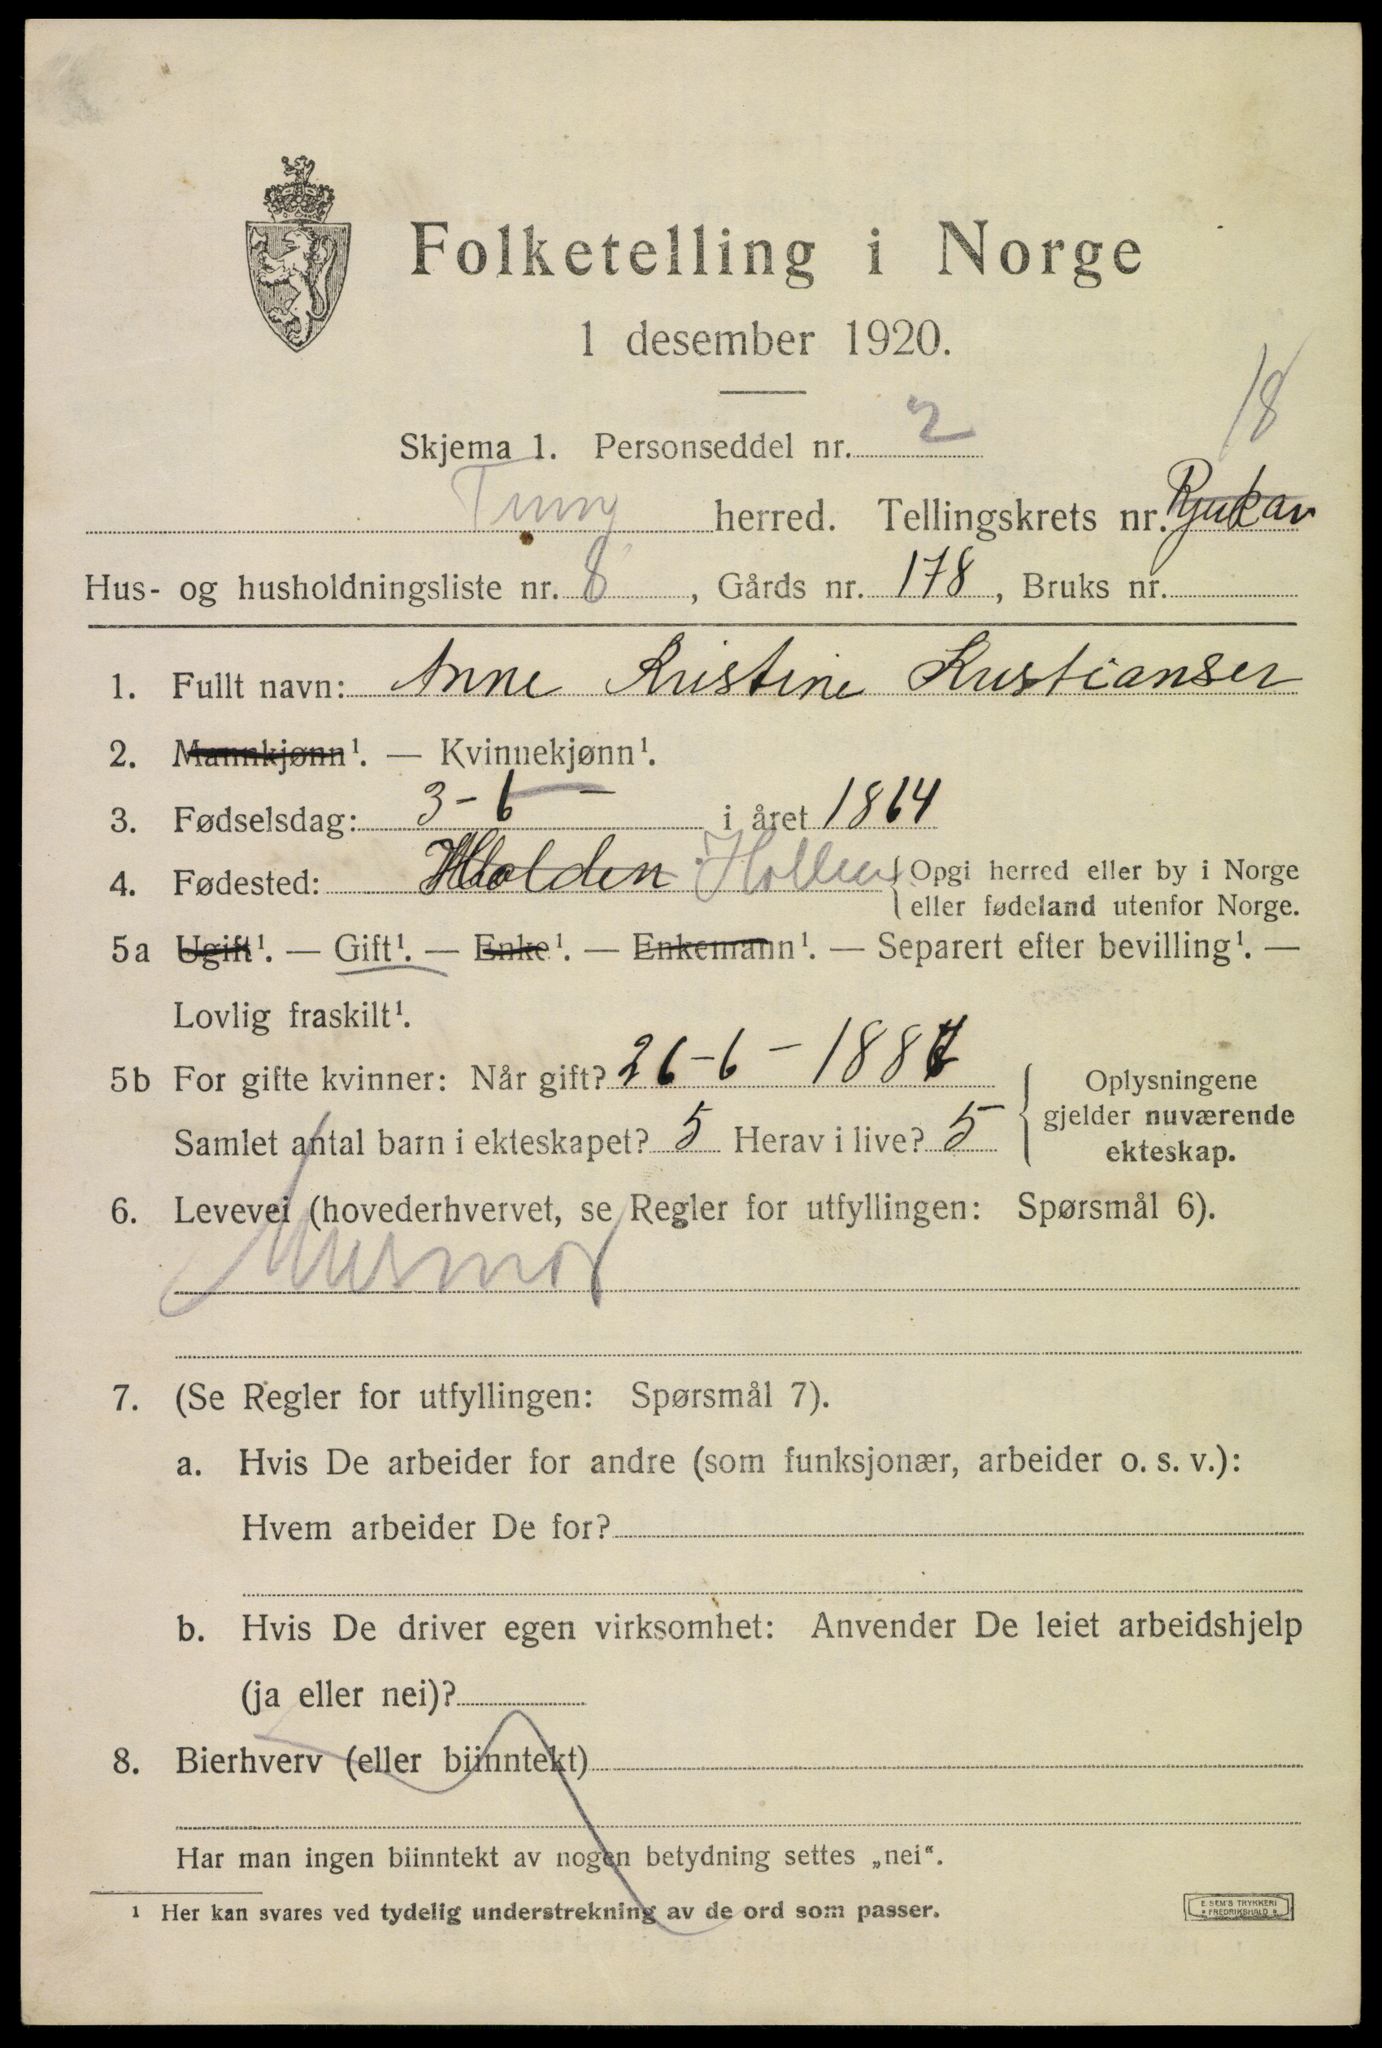 Folketelling i Norge
1 desember 1920.
18
Skjema 1. Personseddel nr. 2
Tinn herred. Tellingskrets nr. Rjukan
Hus- og husholdningsliste nr. 8, Gårds nr. 178, Bruks nr.
1. Fullt navn: Anne Kristine Kristiansen
2. Mannkjønn¹. — Kvinnekjønn¹.
3. Fødselsdag: 3-6 — i året 1864
4. Fødested: Holden Hollen {Opgi herred eller by i Norge
eller fødeland utenfor Norge.
5a Ugift¹. — Gift¹. — Enke¹. — Enkemann¹. — Separert efter bevilling¹. —
Lovlig fraskilt¹.
5b For gifte kvinner: Når gift? 26-6-1887
Samlet antal barn i ekteskapet? 5 Herav i live? 5
{Oplysningene
gjelder nuværende
ekteskap.
6. Levevei (hovederhvervet, se Regler for utfyllingen: Spørsmål 6).
Husmor
7. (Se Regler for utfyllingen: Spørsmål 7).
a. Hvis De arbeider for andre (som funksjonær, arbeider o. s. v.):
Hvem arbeider De for?
b. Hvis De driver egen virksomhet: Anvender De leiet arbeidshjelp
(ja eller nei)?
8. Bierhverv (eller biinntekt)
Har man ingen biinntekt av nogen betydning settes „nei“.
1 Her kan svares ved tydelig understrekning av de ord som passer.
E. SEM'S TRYKKERI
FREDRIKSHALD